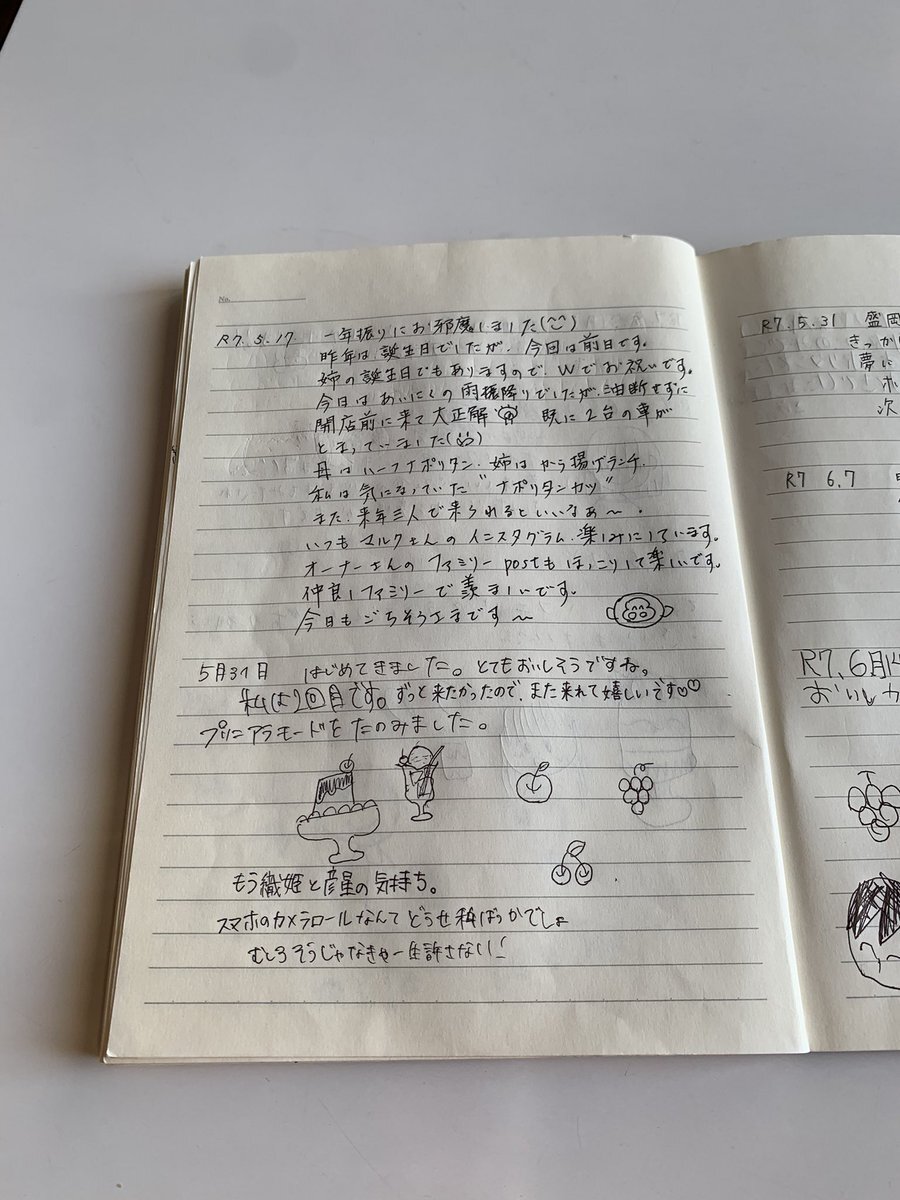 No.
R7.5.17 一年振りにお邪魔しました(^^)
昨年は誕生日でしたが、今回は前日です。
姉の誕生日でもありますので、Wでお祝いです。
今日はあいにくの雨振降りでしたが、油断せずに
開店前に来て大正解 既に2台の車が
とまっていました(^^)
母はハーフナポリタン、姉はから揚げランチ、
私は気になっていた"ナポリタンカツ"
また、来年三人で来られるといいなぁ〜。
いつもマルクさんのインスタグラム、楽しみにしています。
オーナーさんのファミリーpostもほっこりして楽しいです。
仲良しファミリーで羨ましいです。
今日もごちそうさまです〜
5月31日 はじめてきました。とてもおいしそうですね。
私は2回目です。ずっと来たかったので、また来れて嬉しいです♡♡
プリンアラモードをたのみました。
もう織姫と彦星の気持ち。
スマホのカメラロールなんてどうせ私ばっかでしょ
むしろそうじゃなきゃ一生許さない!
R7.5.31 盛岡
きっか
夢に
ホ
次
R7 6.7
R7.6月
おいしか